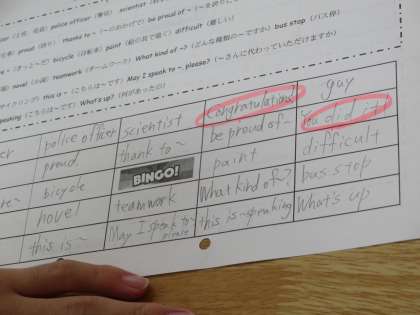 police officer (警官) scientist
proud (誇り) thanks to ~ (~のおかげで) be proud of ~
bicycle (自転車) paint (絵の具で描く) difficult (難しい)
novel (小説) teamwork (チームワーク) What kind of ~? (どんな種類の~ですか) bus stop (バス停)
this is ~ (こちらは~です) May I speak to ~, please? (~さんに代わっていただけますか)
speaking (こちらは~です) What's up? (何があったの)
er police officer scientist Congratulations! guy
proud thank to ~ be proud of~ You did it!
re~ bicycle BINGO! paint difficult
novel teamwork What kind of~? bus stop
this is ~ May I speak to~ please this is~speaking What's up